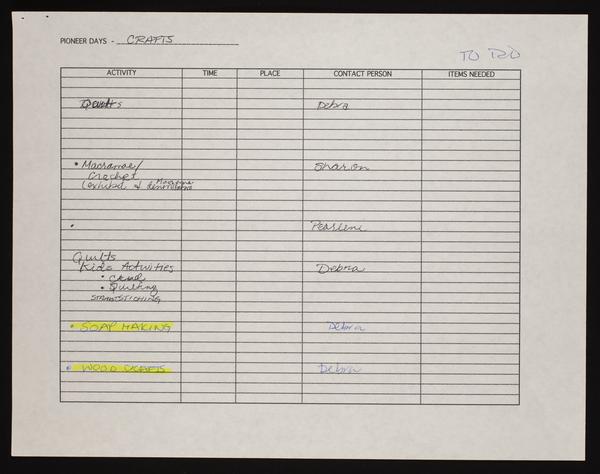 PIONEER DAYS - CRAFTS
TO DO
ACTIVITY TIME PLACE CONTACT PERSON ITEMS NEEDED
Debra
• Macrame/ Sharon
Crochet
(exhibit &
Macrame
• Pearlene
Quilts
Kids Activities Debra
•
• Quilting
• SOAP MAKING Debra
• WOOD CRAFTS Debra